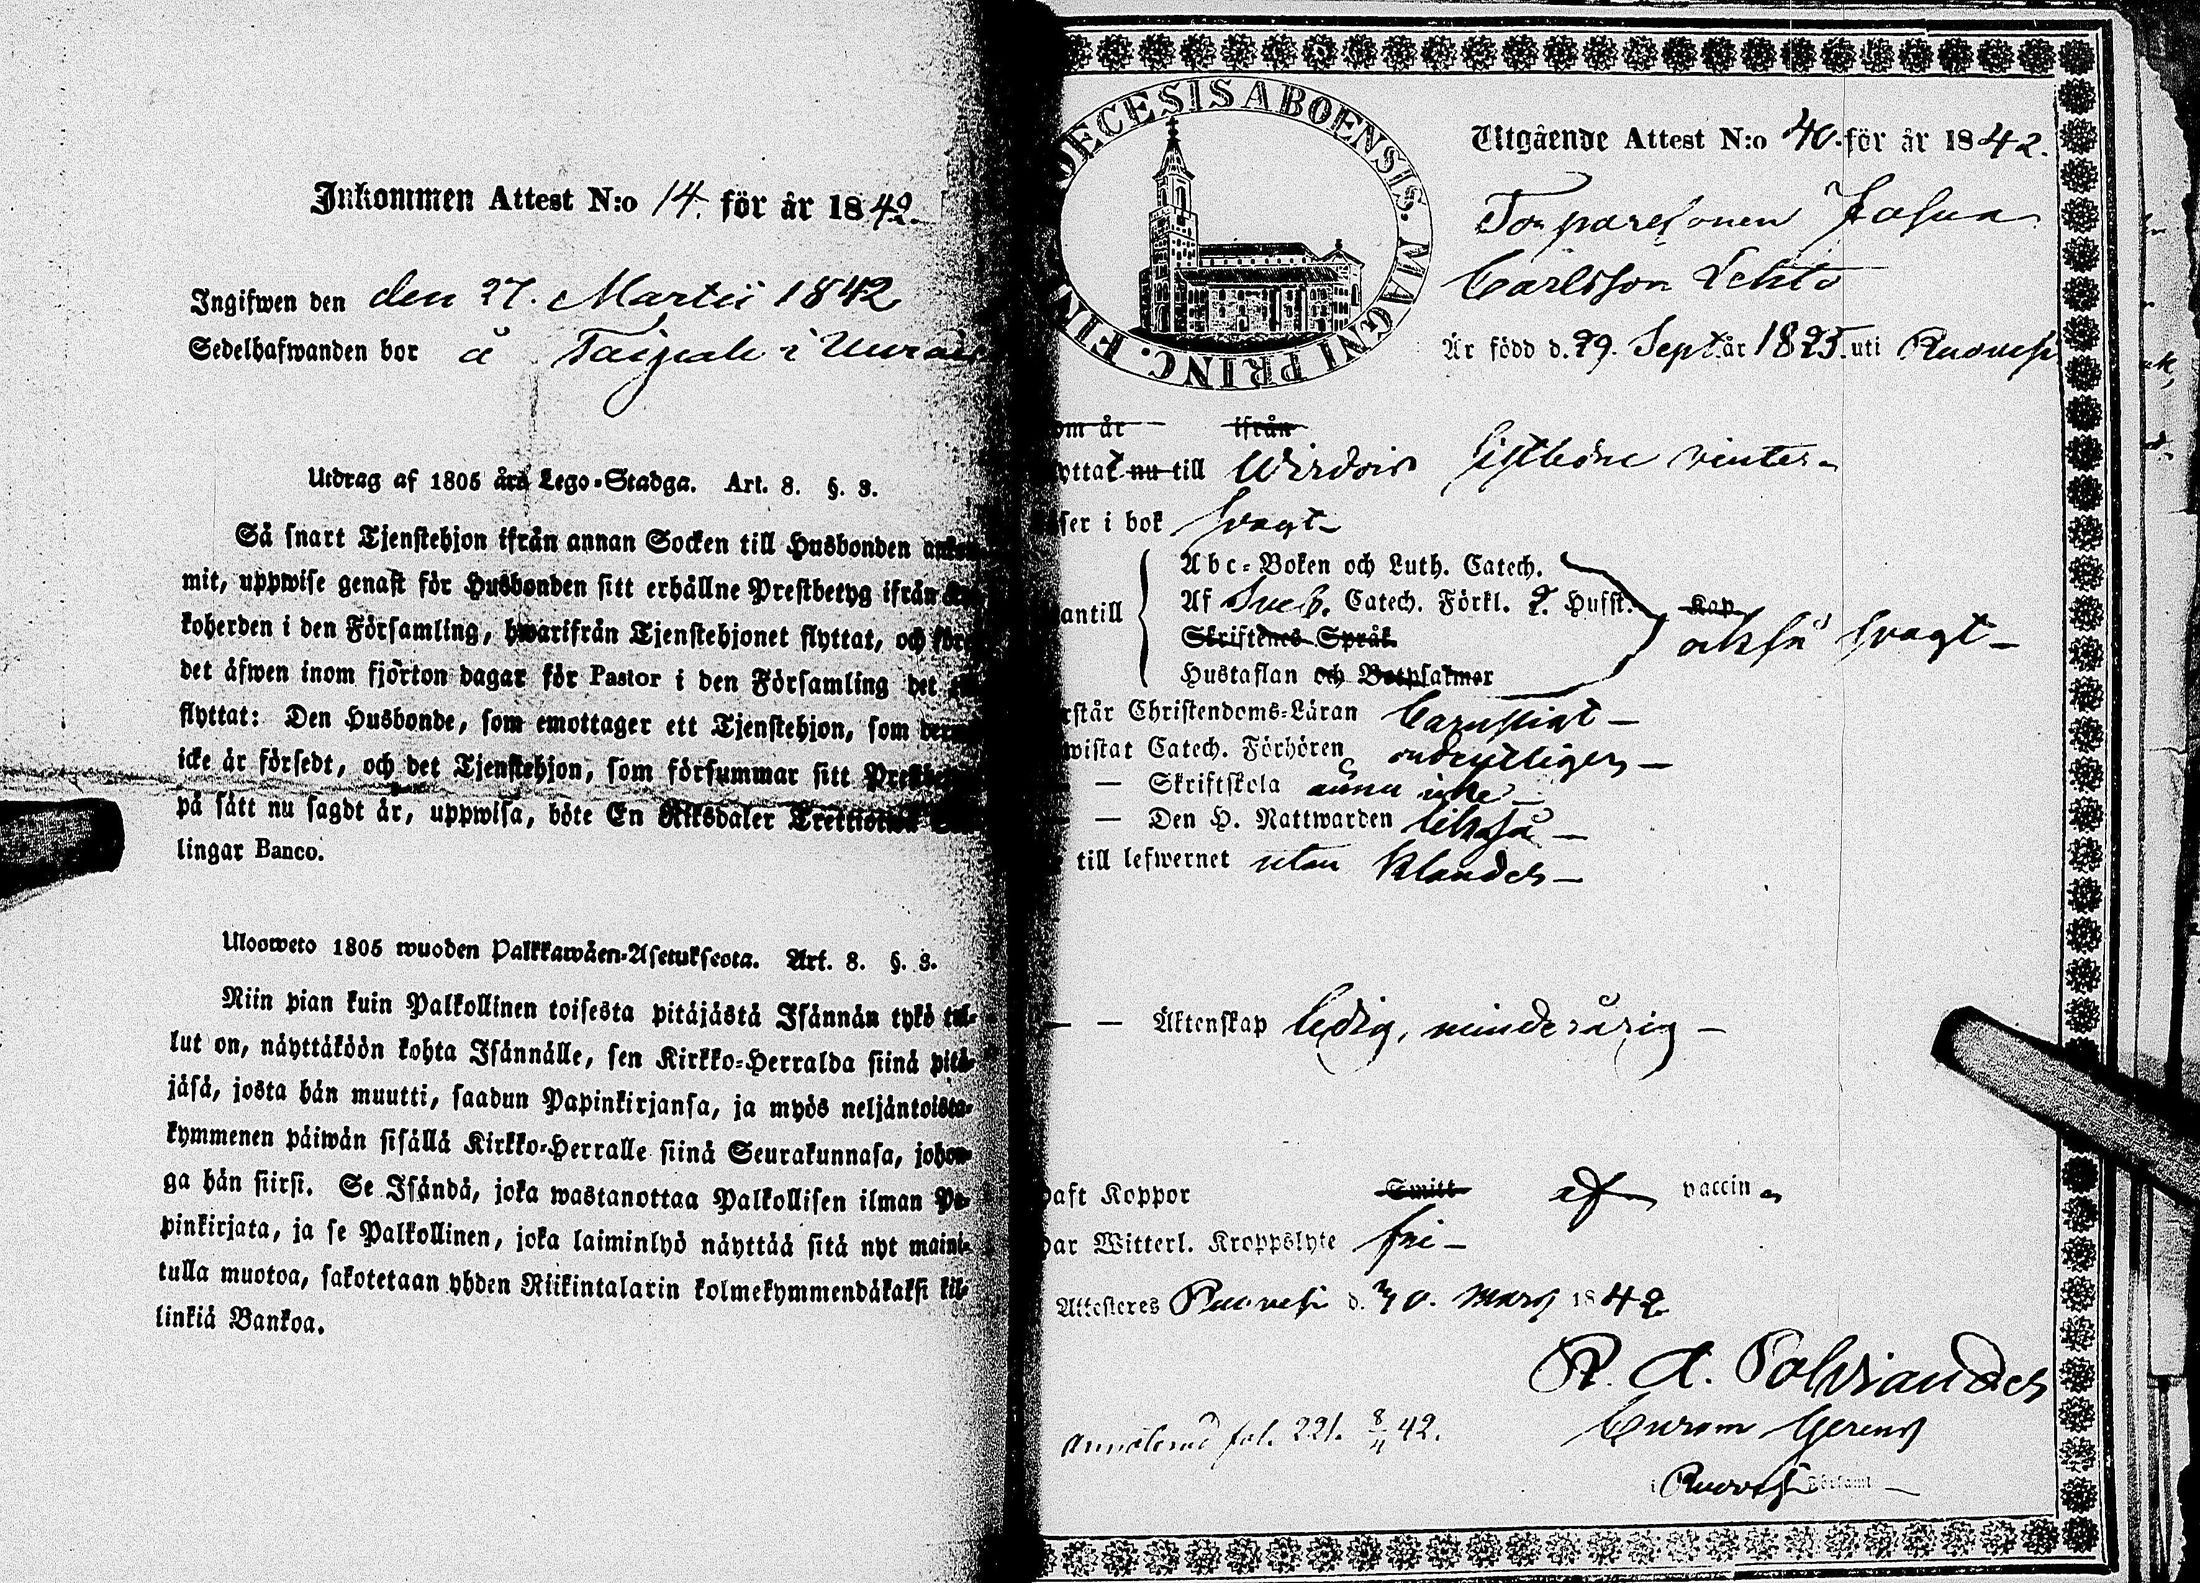 Inkommen Attest N:o 14. för år 1842.
Ingifwen den den 27. Martii 1842
Sedelhafwanden bor å Taipale i
Utdrag af 1805 års Lego-Stadga. Art. 8. §. 3.
Så snart Tjenstehjon ifrån annan Socken till Husbonden
mit, uppwise genast för Husbonden sitt erhållne Prestbetyg ifrån
koherden i den Församling, hwarifrån Tjenstehjonet flyttat, och
det äfwen inom fjorton dagar för Pastor i den Församling det
flyttat: Den Husbonde, som emottager ett Tjenstehjon, som
icke är försedt, och det Tjenstehjon, som försummar sitt
på sätt nu sagdt är, uppwisa, böte En Riksdaler
lingar Banco.
Uloosweto 1805 wuoden Palkkawäen-Asetuksesta. Art. 8. §. 3.
Niin pian kuin Palkollinen toisesta pitäjästä Isännän tykö tul-
lut on, näyttäköön kohta Isännälle, sen Kirkko-Herralda siinä pitä-
jäsä, josta hän muutti, saadun Papinkirjansa, ja myös neljäntoista-
kymmenen päiwän sisällä Kirkko-Herralle siinä Seurakunnasa, johon-
ga hän siirsi. Se Isändä, joka wastanottaa Palkollisen ilman Pa-
pinkirjata, ja se Palkollinen, joka laiminlyö näyttää sitä nyt maini-
tulla muotoa, sakotetaan yhden Riikintalarin kolmekymmendäkaksi kil-
linkiä Bankoa.
DECESIS ABOENSIS. MAGNI PRINC. FIN
Utgående Attest N:o 40. för år 1842.
Torparesonen Josua
Carlsson Lehto
Är född d. 29. Sept. år 1825. uti Ruovesi
om år ifrån
yttat nu till Wirdois sistledne vinter
ser i bok svagt
Abc-Boken och Luth. Catech.
antill Af Sveb. Catech. Förkl. 2. Hufst. Kap
Skriftenes Språk också svagt
Hustaflan och Botpsalmer
rstår Christendoms-Läran
wistat Catech. Förhören
— Skriftskola ännu icke
— Den H. Nattwarden likaså
till lefwernet utan klander
— Äktenskap ledig, minderårig
haft Koppor Smitt af vaccin
har Witterl. Kroppslyte fri
Attesteres Ruovesi d. 20. Mars 1842
R. A. Polviander
Curam Gerens
i Ruovesi Församl
Annoterad fol. 221. 8/4 42.